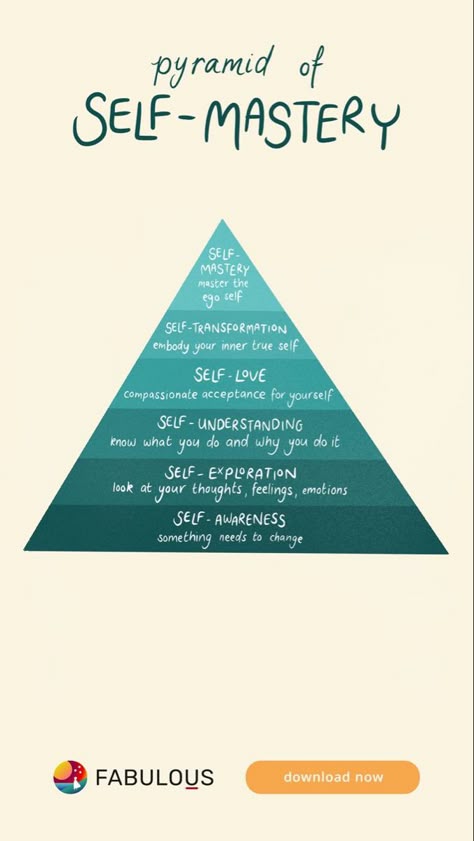 pyramid of
SELF-MASTERY
SELF-
MASTERY
master the
ego self
SELF-TRANSFORMATION
embody your inner true self
SELF-LOVE
compassionate acceptance for yourself
SELF-UNDERSTANDING
know what you do and why you do it
SELF-EXPLORATION
look at your thoughts, feelings, emotions
SELF-AWARENESS
something needs to change
FABULOUS
download now